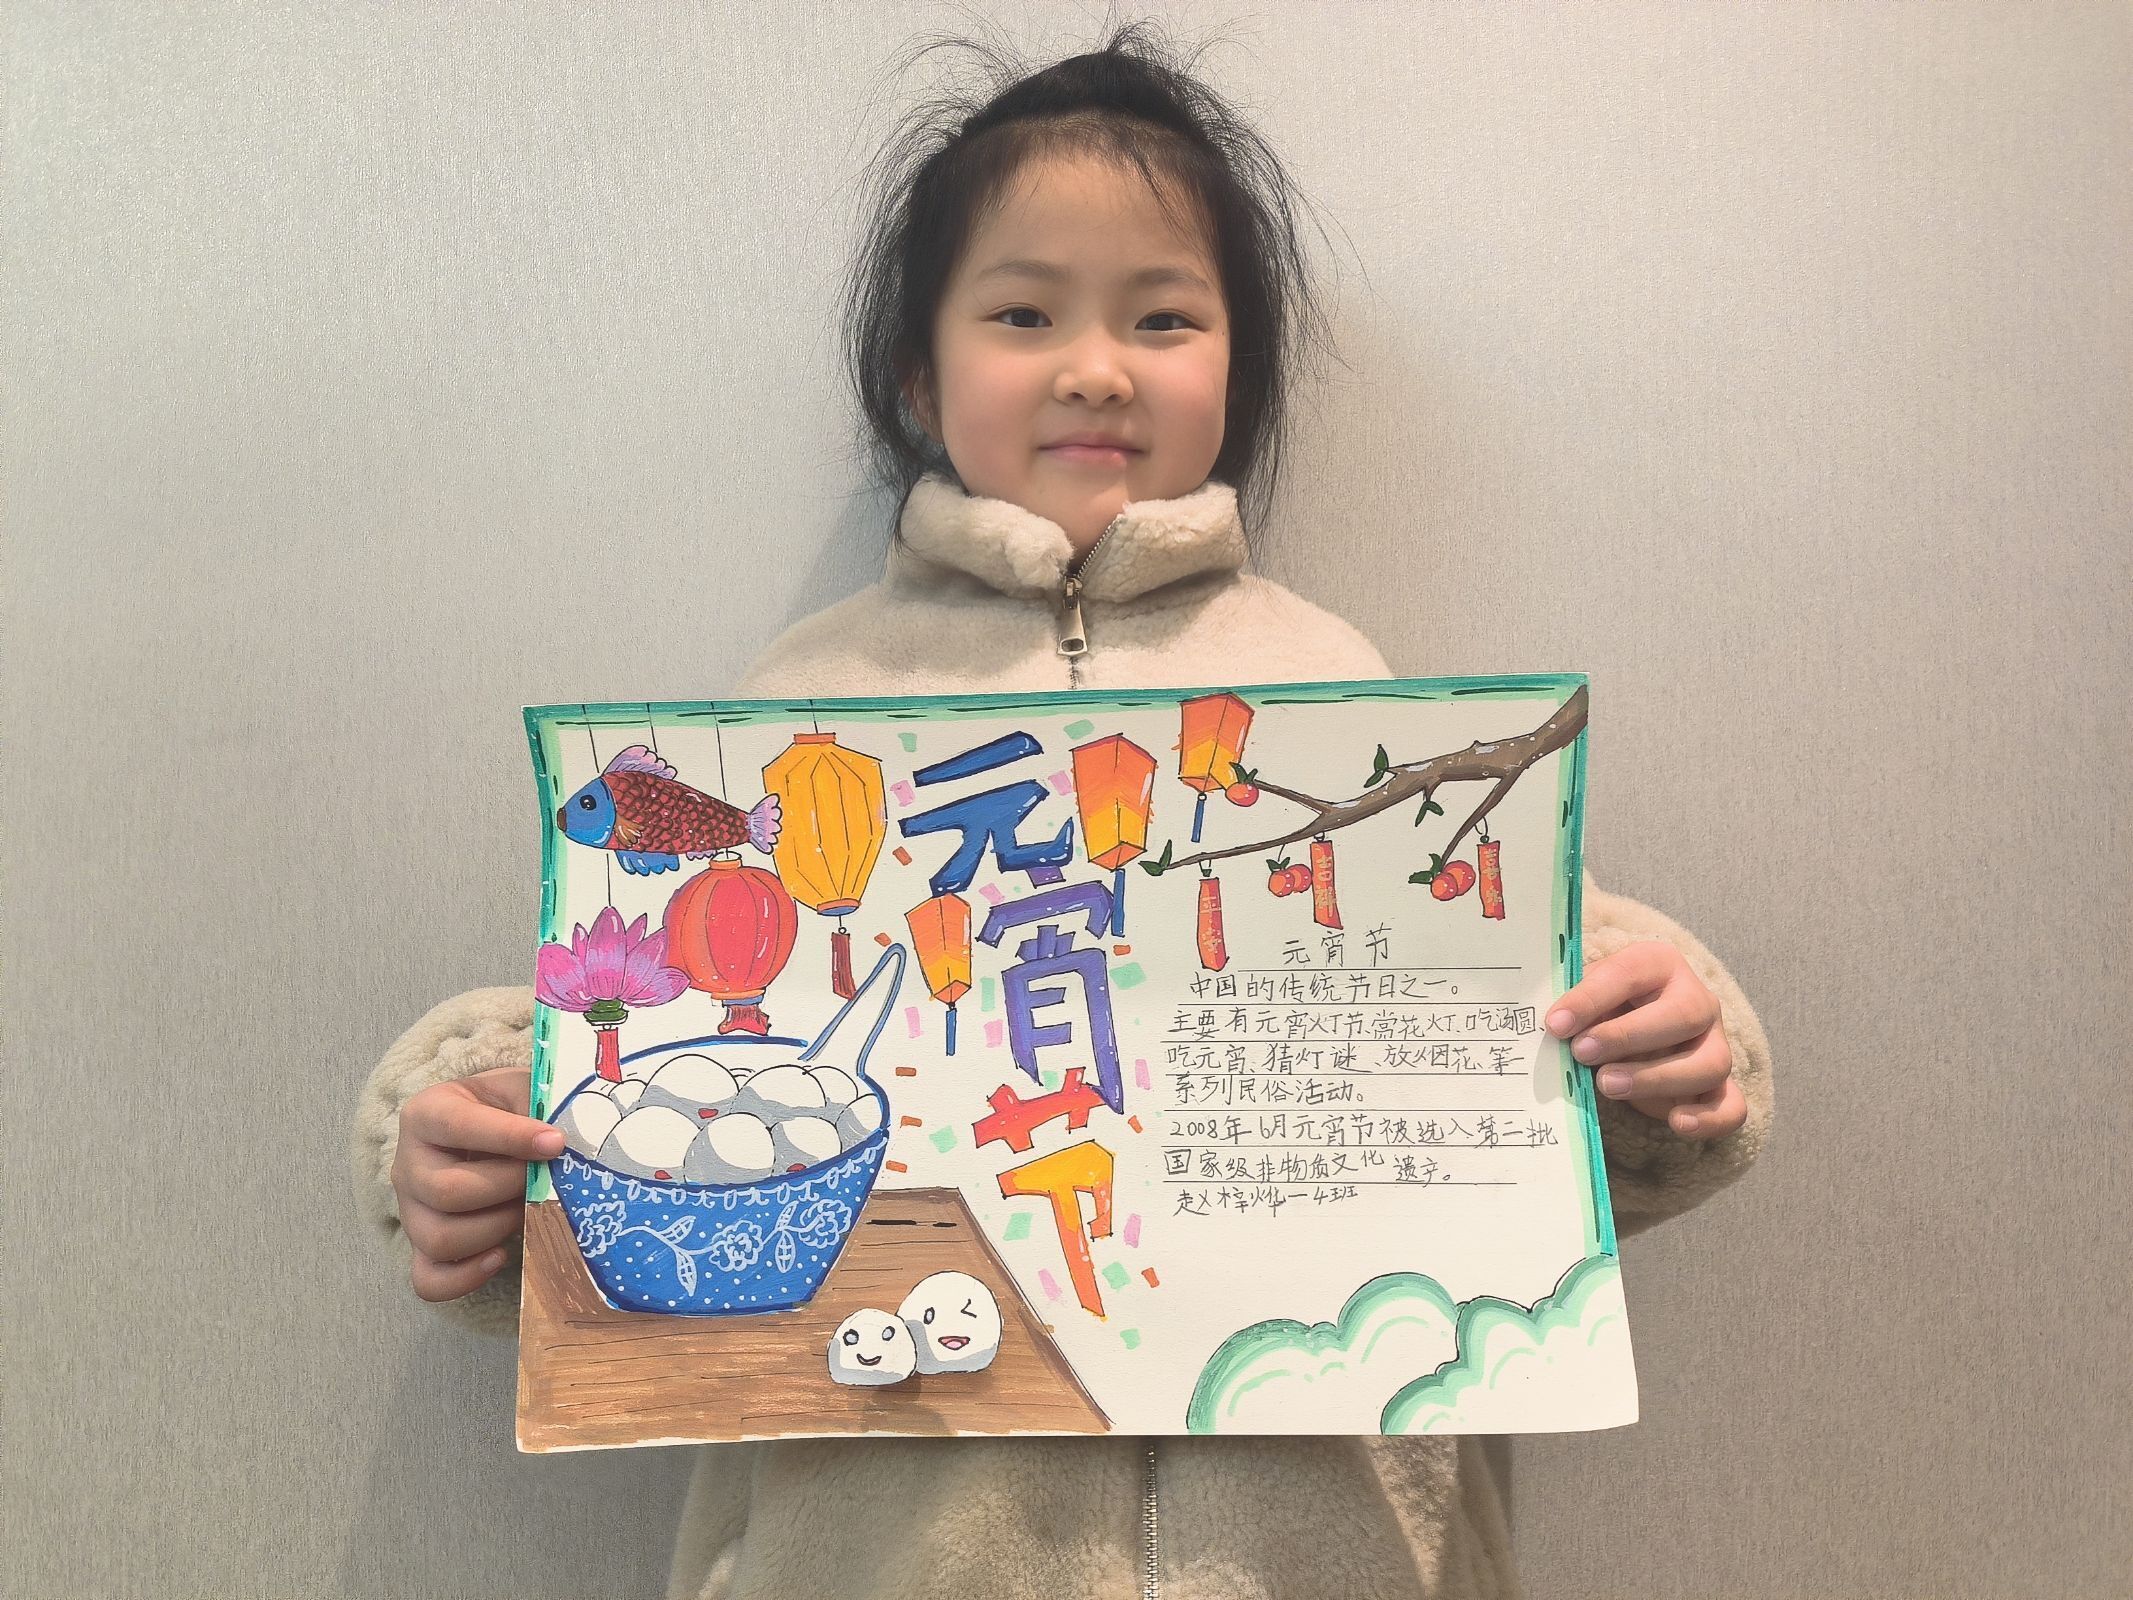 元宵节
平安
吉祥
喜乐
元宵节
中国的传统节日之一。
主要有元宵灯节、赏花灯、吃汤圆、
吃元宵、猜灯谜、放烟花、等一
系列民俗活动。
2008年6月元宵节被选入第二批
国家级非物质文化遗产。
赵梓烨一4班